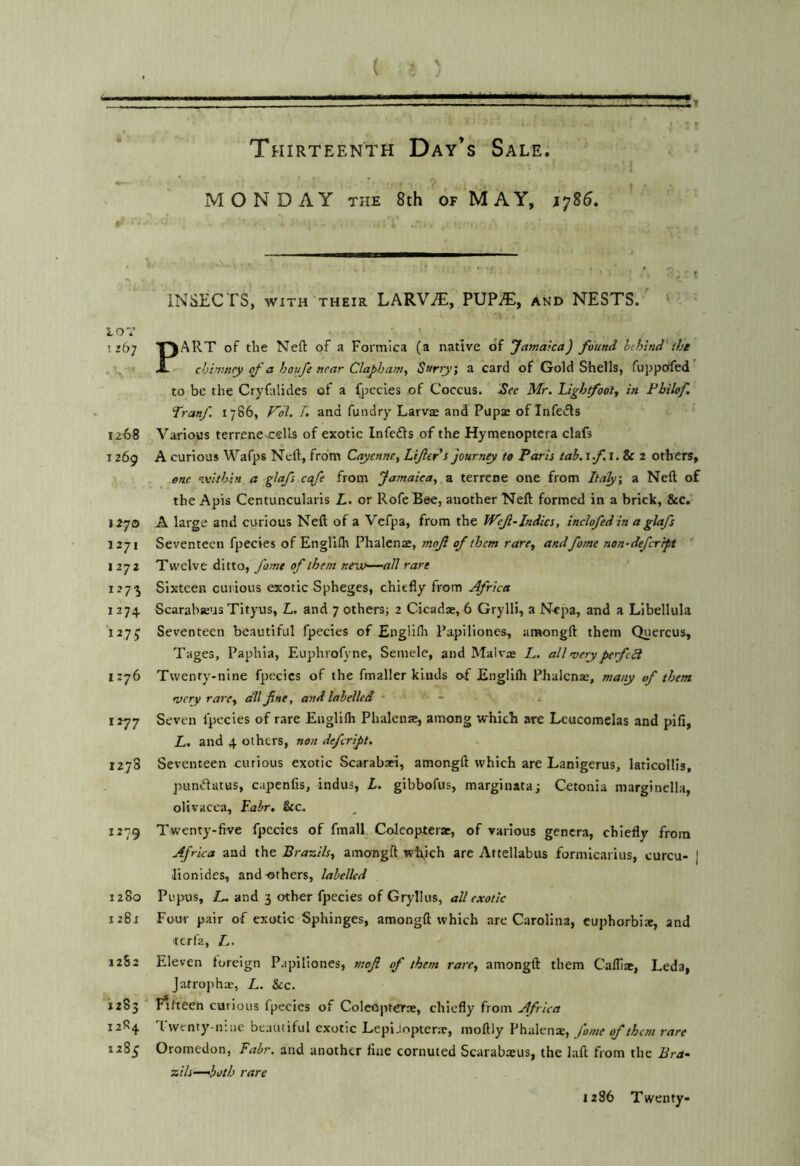 Thirteenth Day's Sale.
MONDAY THE 8th OF MAY, 1786.
INSECTS, WITH THEIR LARVÆ, PUPÆ, AND NESTS.
LOT
1267 PART of the Neſt of a Formica (a native of Jamaica) found behind the
chimney of a houſe near Clapham, Surry; a card of Gold Shells, ſuppoſed
to be the Cryſalides of a ſpecies of Coccus. See Mr. Lightfoot, in Philoſ.
Tranſ. 1786, Vol. I. and ſundry Larvæ and Pupæ of Inſects
1268 Various terrene cells of exotic Inſects of the Hymenoptera claſs
1269 A curious Waſps Neſt, from Cayenne, Liſter's journey to Paris tab. 1. f. 1. & 2 others,
one within a glaſs caſe from Jamaica, a terrene one from Italy; a Neſt of
the Apis Centuncularis L. or Roſe Bee, another Neſt formed in a brick, &c.
1270 A large and curious Neſt of a Veſpa, from the Weſt-Indies, incloſed in a glaſs
1271 Seventeen ſpecies of Engliſh Phalenæ, moſt of them rare, and ſome non-deſcript
1272 Twelve ditto, ſome of them new—all rare
1273 Sixteen curious exotic Spheges, chiefly from Africa
1274 Scarabæus Tityus, L. and 7 others; 2 Cicadæ, 6 Grylli, a Nepa, and a Libellula
1275 Seventeen beautiful ſpecies of Engliſh Papiliones, amongſt them Quercus,
Tages, Paphia, Euphroſyne, Semele, and Malvæ L. all very perfect
1276 Twenty-nine ſpecies of the ſmaller kinds of Engliſh Phalenæ, many of them
very rare, all fine, and labelled
1277 Seven ſpecies of rare Engliſh Phalenæ, among which are Leucomelas and piſi,
L. and 4 others, non deſcript.
1278 Seventeen curious exotic Scarabæi, amongſt which are Lanigerus, laticollis,
punctatus, capenſis, indus, L. gibboſus, marginata; Cetonia marginella,
olivacea, Fabr. &c.
1279 Twenty-five ſpecies of ſmall Coleopteræ, of various genera, chiefly from
Africa and the Brazils, amongſt which are Attellabus formicarius, curcu-
lionides, and others, labelled
1280 Pupus, L. and 3 other ſpecies of Gryllus, all exotic
1281 Four pair of exotic Sphinges, amongſt which are Carolina, euphorbiæ, and
terſa, L.
1282 Eleven foreign Papiliones, moſt of them rare, amongſt them Caſſiæ, Leda,
Jatrophæ, L. &c.
1283 Fifteen curious ſpecies of Coleopteræ, chiefly from Africa
1284 Twenty-nine beautiful exotic Lepidopteræ, moſtly Phalenæ, ſome of them rare
1285 Oromedon, Fabr. and another fine cornuted Scarabæus, the laſt from the Bra-
zils—both rare
1286 Twenty-